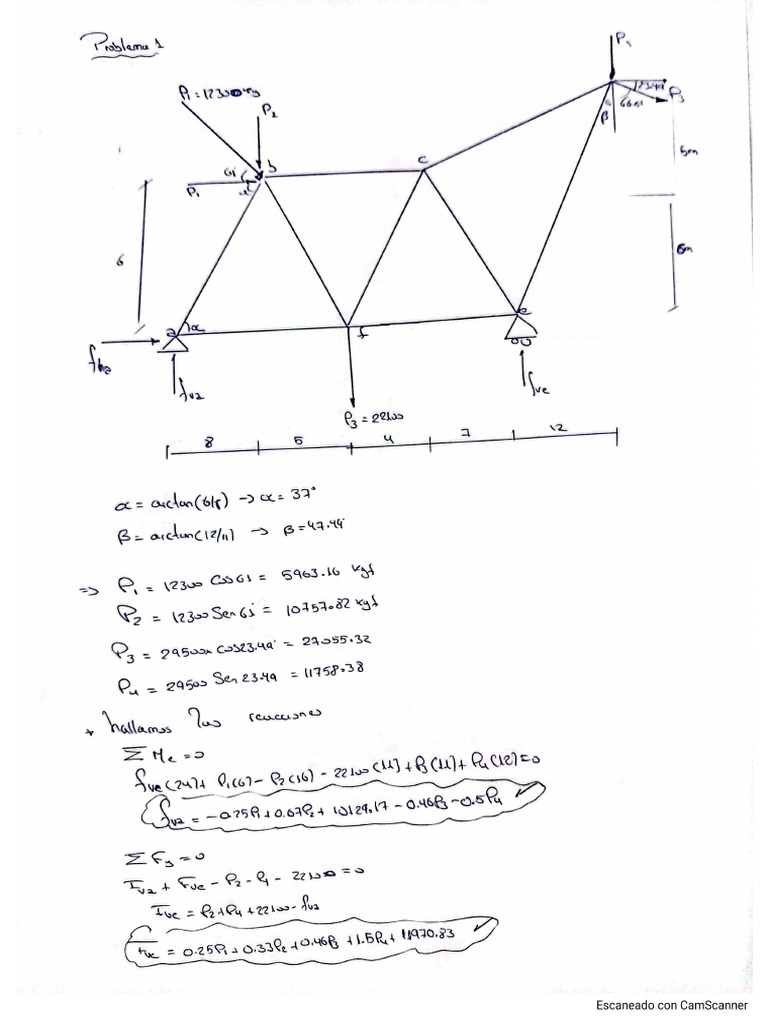 Problema 1
P₁
P₁ = 12300 kg
P₂
23.49
P₃
66.51
β
b
c
61°
P₁
α
5m
6
6m
a
α
f
e
fha
fva
fve
P₃ = 22100
8 5 4 7 12
α = arctan(6/8) → α = 37°
β = arctan(12/11) → β = 47.49
⇒ P₁ = 12300 Cos 61 = 5963.16 kgf
P₂ = 12300 Sen 61 = 10757.82 kgf
P₃ = 29500 x cos 23.49 = 27055.32
P₄ = 29500 Sen 23.49 = 11758.38
* hallamos las reacciones
Σ Me = 0
fva(24) + P₁(6) - P₂(16) - 22100(11) + P₃(11) + P₄(12) = 0
fva = -0.25P₁ + 0.67P₂ + 10129.17 - 0.46P₃ - 0.5P₄ ✓
Σ Fy = 0
Fva + Fve - P₂ - P₄ - 22100 = 0
Fve = P₂ + P₄ + 22100 - fva
Fve = 0.25P₁ + 0.33P₂ + 0.46P₃ + 1.5P₄ + 11970.83 ✓
Escaneado con CamScanner